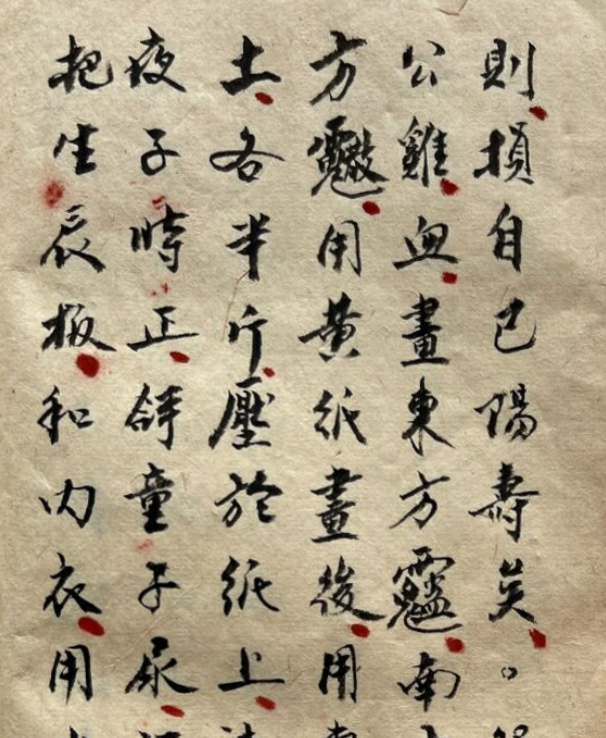 則損自己陽壽矣。
公雞血畫東方南
方用黃紙畫後用
土各半斤壓於紙上
夜子時正童子尿
把生辰板和内衣用